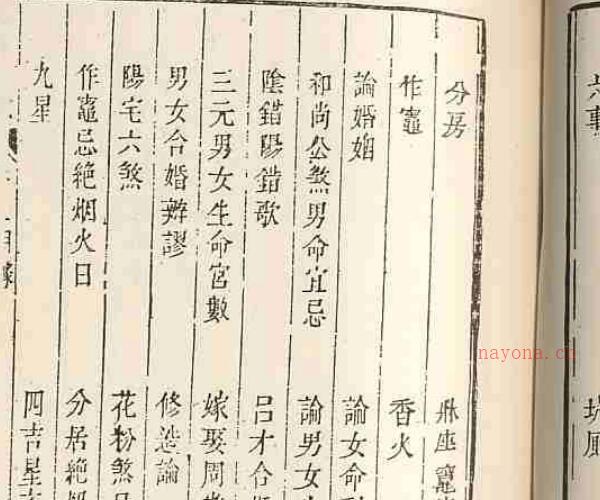 分房
作竈
論婚姻
和尚公煞男命宜忌
陰錯陽錯歌
三元男女生命宮數
男女合婚辨謬
陽宅六煞
作竈忌絶烟火日
九星
香火
論女命
論男女
呂才合
嫁娶周
修造論
花粉煞
分居絶
四吉星
nayona.cn